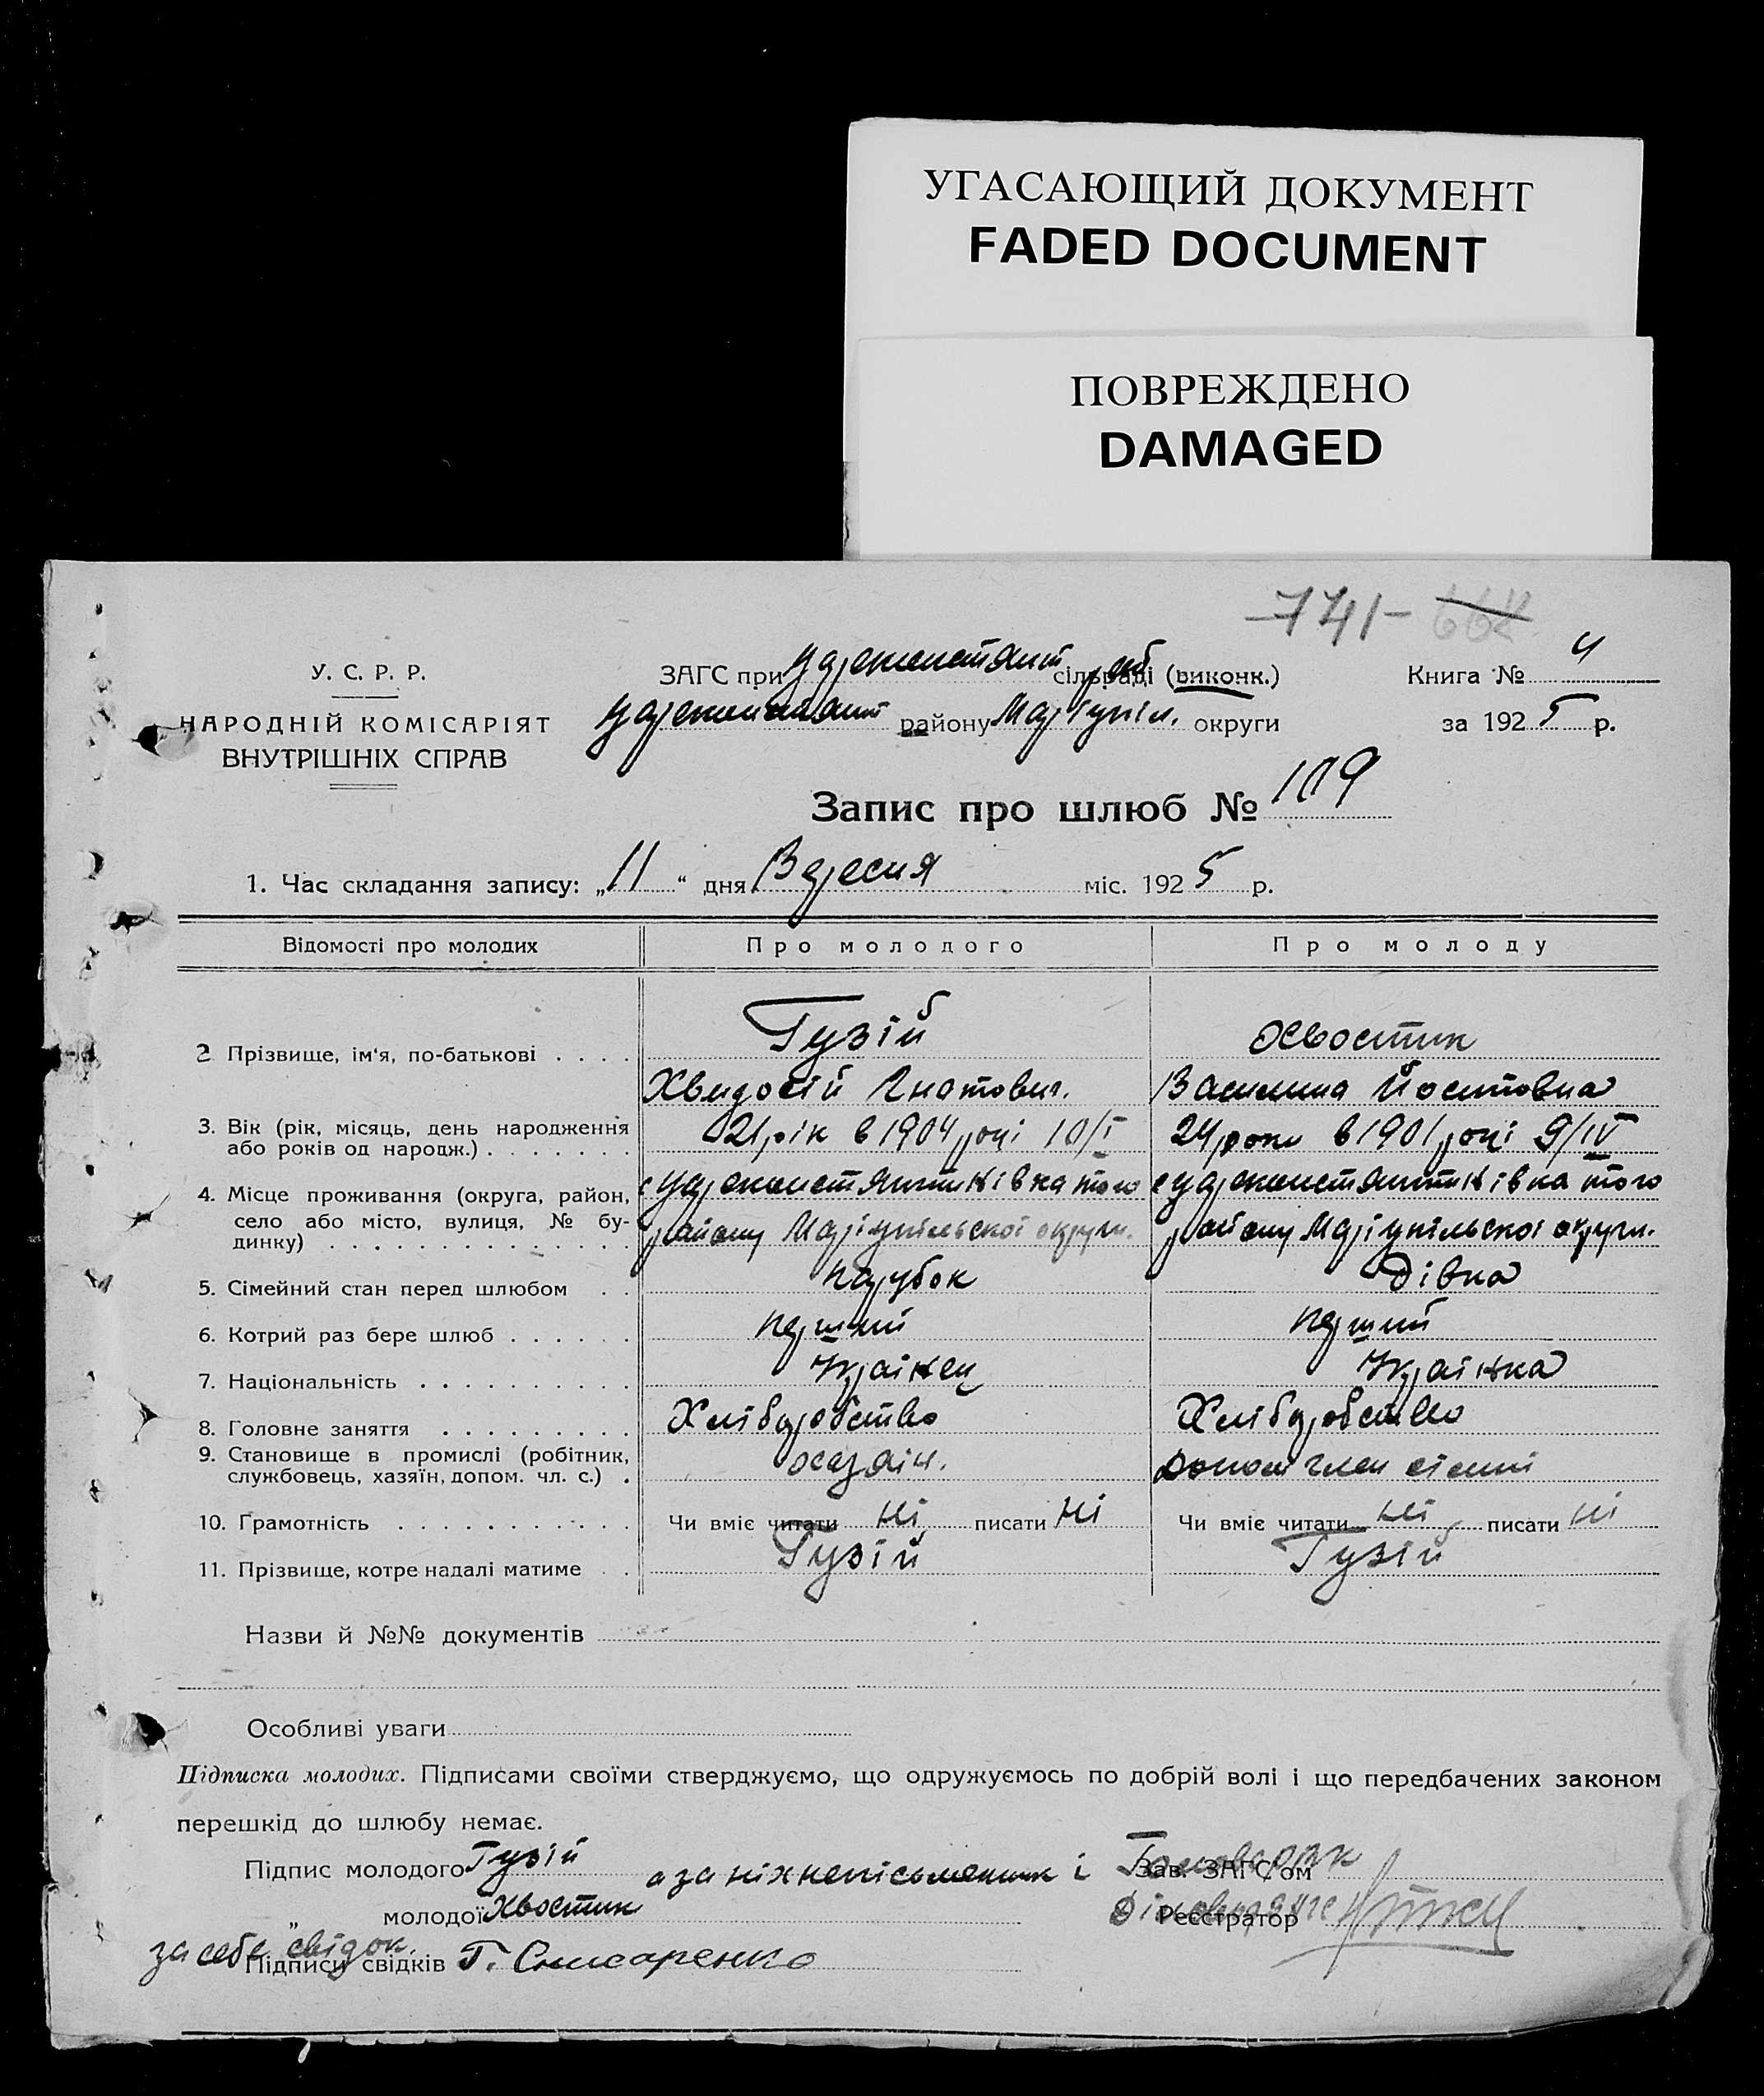 УГАСАЮЩИЙ ДОКУМЕНТ
FADED DOCUMENT
ПОВРЕЖДЕНО
DAMAGED
741-
У. С. Р. Р.
НАРОДНІЙ КОМІСАРІЯТ
ВНУТРІШНІХ СПРАВ
ЗАГС при Царекостянт сільраді (виконк.)
району Маріупіл. округи
Книга № 4
за 1925 р.
Запис про шлюб № 109
1. Час складання запису: „11“ дня Вересня міс. 1925 р.
Відомості про молодих Про молодого Про молоду
2 Прізвище, ім‘я, по-батькові . . . . Гузій Хвостик
Хвидосій Гнатович. Василина Йоситовна
3. Вік (рік, місяць, день народження або років од народж.) . . . . . . . 21 рік в 1904 році 10/I 24 роки в 1901 році 9/IV
4. Місце проживання (округа, район, село або місто, вулиця, № будинку) . . . . . . . . . . . . . .
с Цареконстянтинівка того с Цареконстянтинівка того
району Маріупільскої округи. району Маріупільскої округи.
5. Сімейний стан перед шлюбом . . парубок Дівка
6. Котрий раз бере шлюб . . . . . . перший перший
7. Національність . . . . . . . . . . Українец Українка
8. Головне заняття . . . . . . . . . Хліборобство Хліборобство
9. Становище в промислі (робітник, службовець, хазяїн, допом. чл. с.) . допом член сіеми
10. Грамотність . . . . . . . . . . . Чи вміє читати Ні писати Ні Чи вміє читати Ні писати Ні
11. Прізвище, котре надалі матиме . . Гузій Гузій
Назви й №№ документів
Особливі уваги
Підписка молодих. Підписами своїми стверджуємо, що одружуємось по добрій волі і що передбачених законом
перешкід до шлюбу немає.
Підпис молодого Гузій а за ніх непісьменних і Зав. ЗАГС‘ом
„ молодої Хвостик Реєстратор
за себе свідок.
Підписи свідків Г. Слисаренко